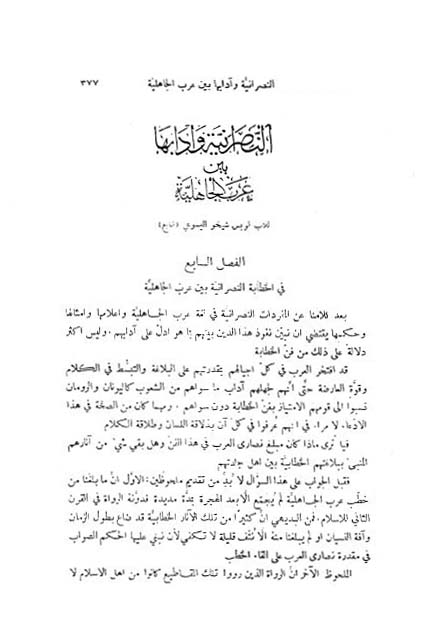 النصرانيَّة وآدابها بين عرب الجاهليَّة ٣٧٧
النصرانية وآدابها
بين
عرب الجاهلية
للاب لويس شيخو اليسوعي (تابع)
الفصل السابع
في الخطابة النصرانيَّة بين عرب الجاهليَّة
بعد كلامنا عن المفردات النصرانيَّة في لغة عرب الجاهليَّة واعلامها وامثالها
وحكمها يقتضي ان نبيّن نفوذ هذا الدين بينهم بما هو ادلّ على آدابهم. وليس اكثر
دلالة على ذلك من فنّ الخطابة
قد افتخر العرب في كلّ اجيالهم بقدرتهم على البلاغة والتبسُّط في الكلام
وقوَّة العارضة حتَّى انَّهم لجهلهم آداب ما سواهم من الشعوب كاليونان والرومان
نسبوا الى قومهم الامتياز بفنّ الخطابة دون سواهم. ومهما كان من الصحَّة في هذا
الادّعاء لا مراء في انهم عُرفوا في كلّ آن بذلاقة اللسان وطلاقة الكلام
فيا تُرى ماذا كان مبلغ نصارى العرب في هذا الفنّ وهل بقي شيء من آثارهم
المنبئ ببلاغتهم الخطابيَّة بين اهل جلدتهم
فقبل الجواب على هذا السؤال لا بُدَّ من تقديم ملحوظين: الاوَّل انَّ ما بلغنا من
خطب عرب الجاهليَّة لم يُجمَع الَّا بعد الهجرة بمدَّة مديدة فدوَّنهُ الرواة في القرن
الثاني للاسلام. فمن البديهي انَّ كثيرًا من تلك الآثار الخطابيَّة قد ضاع بطول الزمان
وآفة النسيان او لم يبلغنا منهُ الَّا نُتَف قليلة لا تكفي لأن نبني عليها الحكم الصواب
في مقدرة نصارى العرب على القاء الخطب
الملحوظ الآخر انَّ الرواة الذين رووا تلك المقاطيع كانوا من اهل الاسلام لا